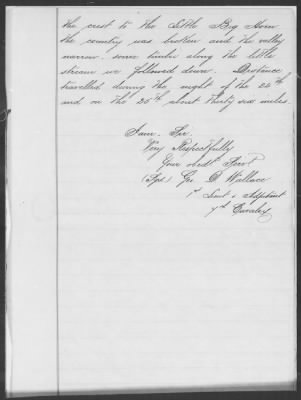 the crest to the Little Big Horn
the country was broken and the valley
narrow. some timber along the little
stream we followed down. Distance
travelled during the night of the 24th
and on the 25th about thirty six miles.
I am. Sir.
Very Respectfully
Your obedt. Servt
(Sgd) Geo D Wallace
1st Lieut & Adjutant
7th Cavalry